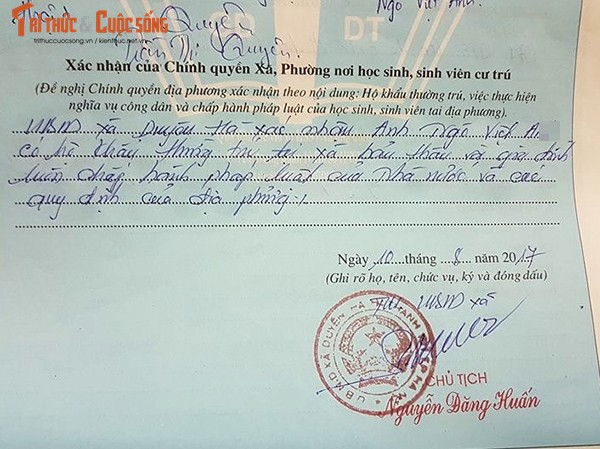 TRI THỨC & CUỘC SỐNG
trithuccuocsong.vn / kienthuc.net.vn
Ngô Việt Anh.
Quyên
Trần Thị Quyên.
Xác nhận của Chính quyền Xã, Phường nơi học sinh, sinh viên cư trú
(Đề nghị Chính quyền địa phương xác nhận theo nội dung: Hộ khẩu thường trú, việc thực hiện
nghĩa vụ công dân và chấp hành pháp luật của học sinh, sinh viên tai địa phương).
UBND xã Duyên Hà xác nhận Anh Ngô Việt A
có hộ khẩu thường trú tại xã bản thân và gia đình
luôn chấp hành pháp luật của Nhà nước và các
quy định của địa phương.
Ngày 10 tháng 8 năm 2017
(Ghi rõ họ, tên, chức vụ, ký và đóng dấu)
TM UBND xã
UBND XÃ DUYÊN HÀ
CHỦ TỊCH
Nguyễn Đăng Huấn